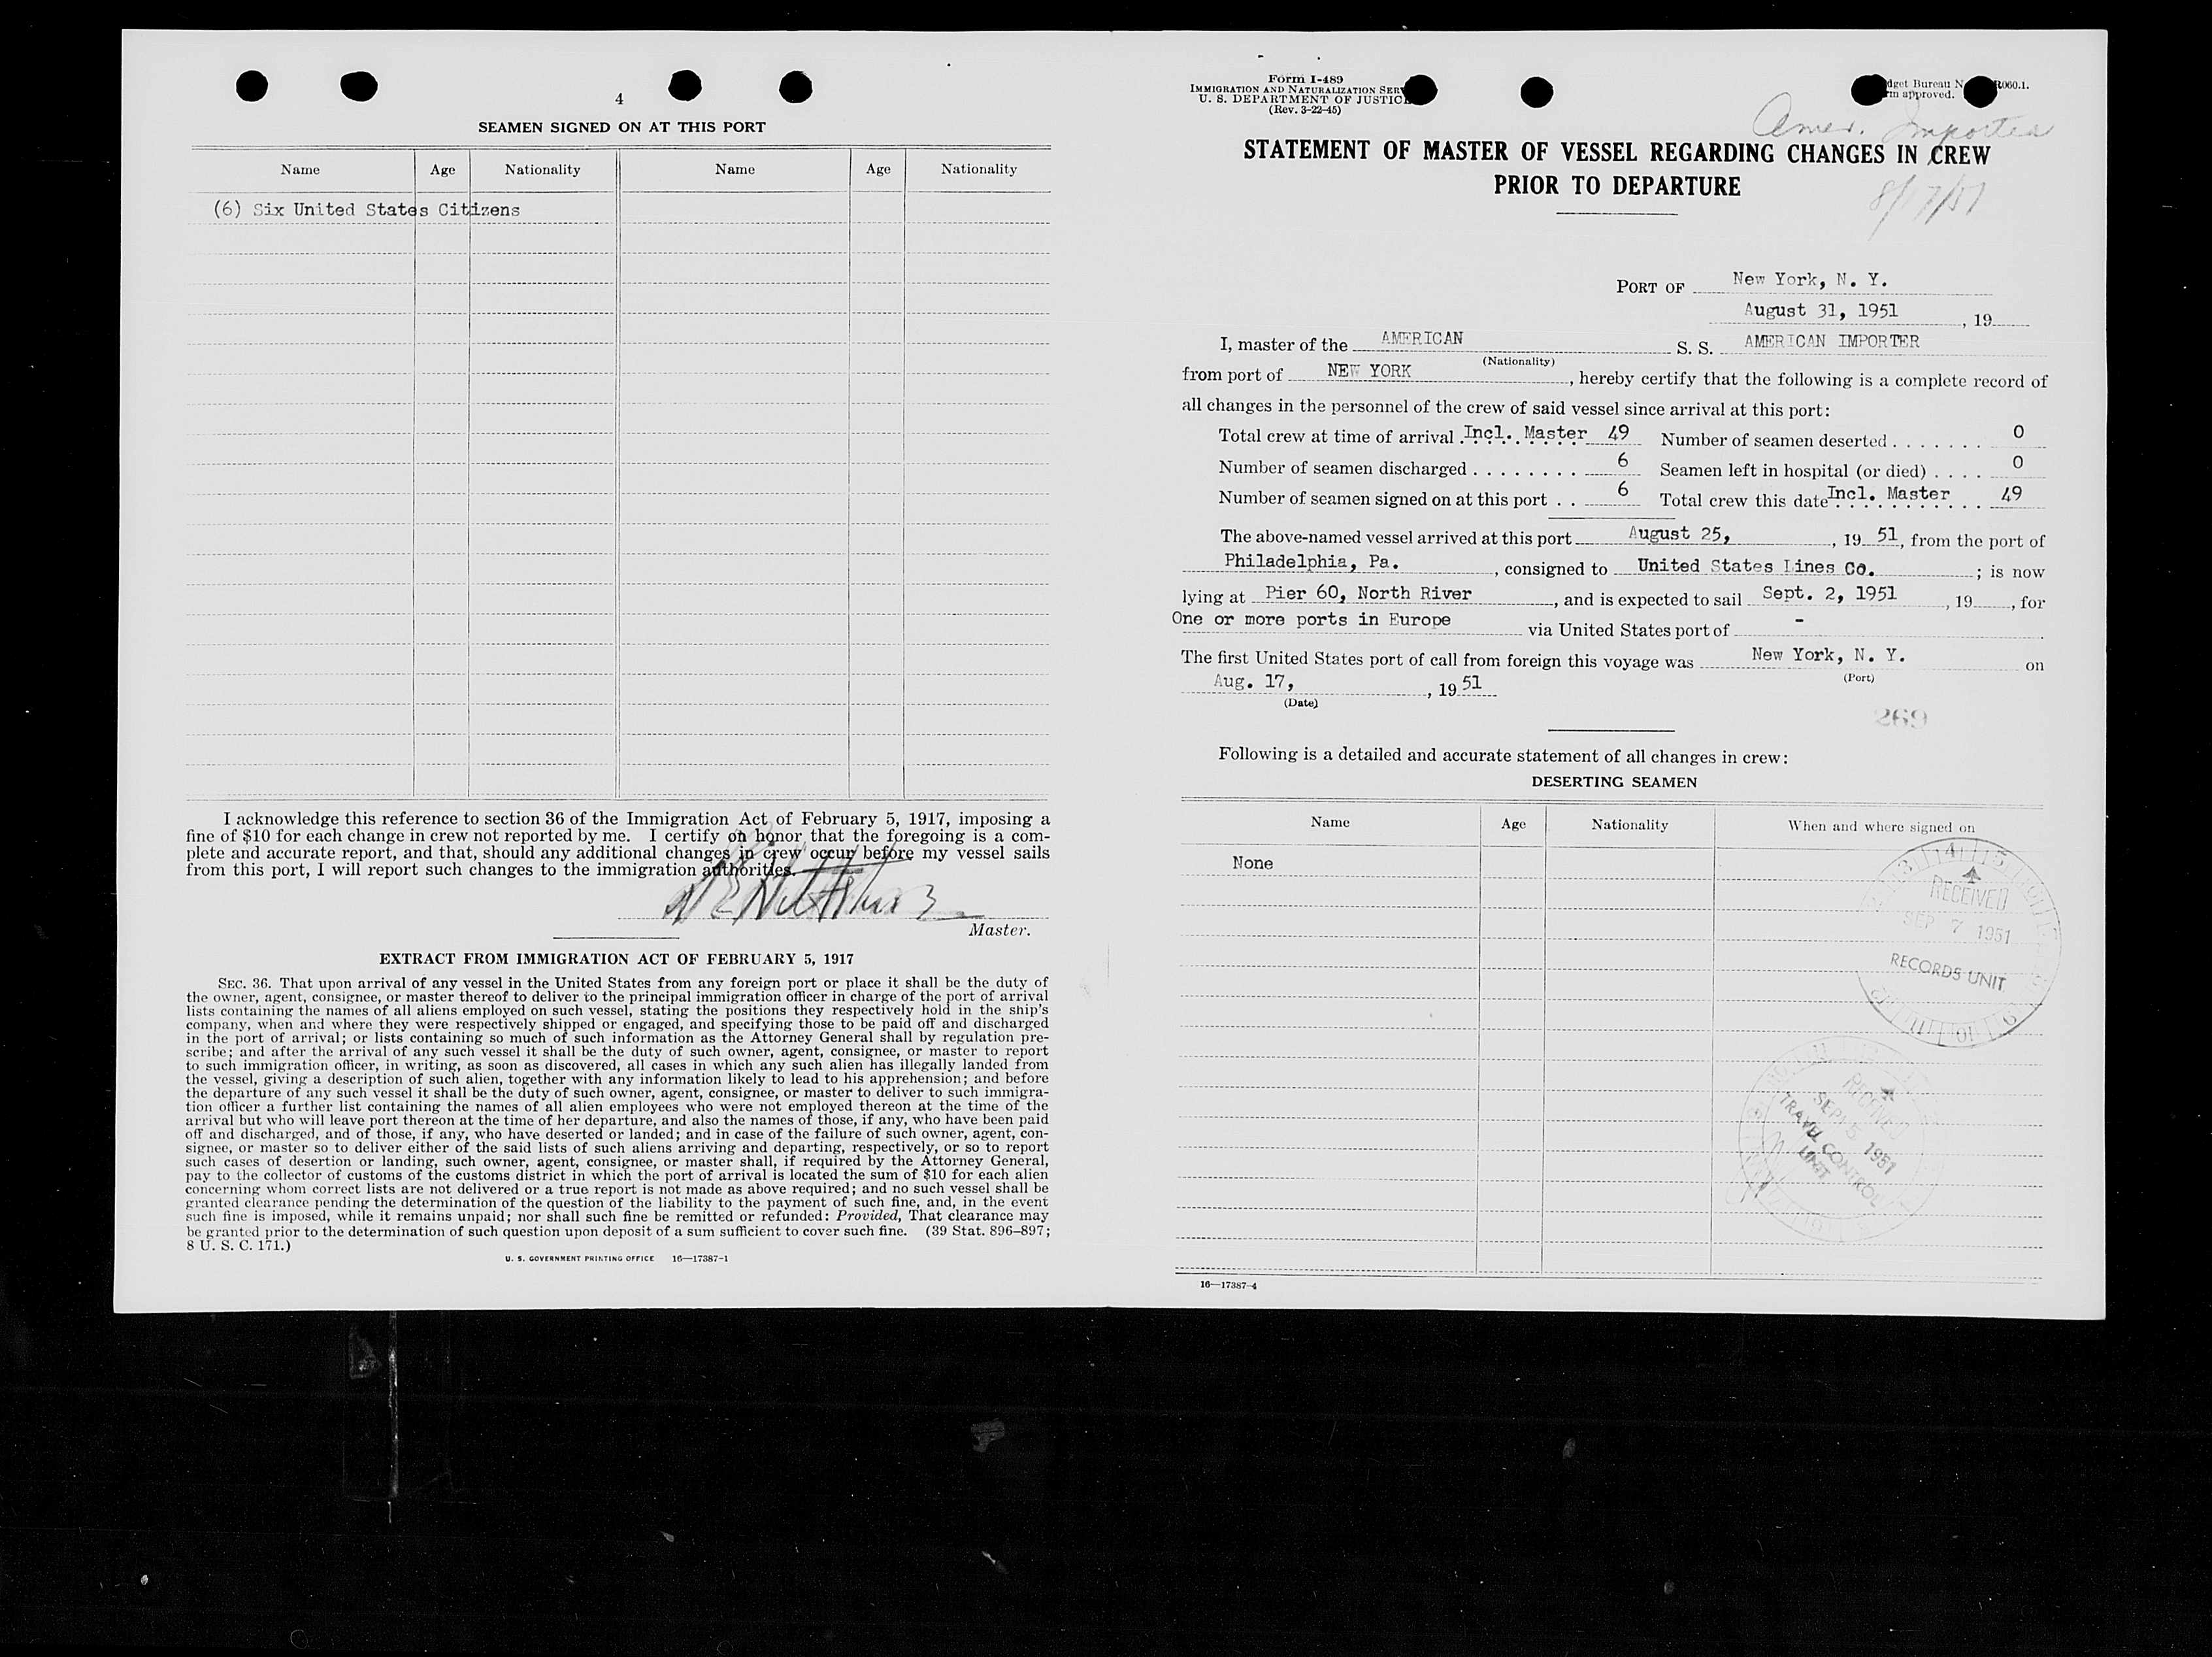 4
SEAMEN SIGNED ON AT THIS PORT
Name Age Nationality Name Age Nationality
(6) Six United States Citizens
I acknowledge this reference to section 36 of the Immigration Act of February 5, 1917, imposing a
fine of $10 for each change in crew not reported by me. I certify on honor that the foregoing is a com-
plete and accurate report, and that, should any additional changes in crew occur before my vessel sails
from this port, I will report such changes to the immigration authorities.
Master.
EXTRACT FROM IMMIGRATION ACT OF FEBRUARY 5, 1917
SEC. 36. That upon arrival of any vessel in the United States from any foreign port or place it shall be the duty of
the owner, agent, consignee, or master thereof to deliver to the principal immigration officer in charge of the port of arrival
lists containing the names of all aliens employed on such vessel, stating the positions they respectively hold in the ship's
company, when and where they were respectively shipped or engaged, and specifying those to be paid off and discharged
in the port of arrival; or lists containing so much of such information as the Attorney General shall by regulation pre-
scribe; and after the arrival of any such vessel it shall be the duty of such owner, agent, consignee, or master to report
to such immigration officer, in writing, as soon as discovered, all cases in which any such alien has illegally landed from
the vessel, giving a description of such alien, together with any information likely to lead to his apprehension; and before
the departure of any such vessel it shall be the duty of such owner, agent, consignee, or master to deliver to such immigra-
tion officer a further list containing the names of all alien employees who were not employed thereon at the time of the
arrival but who will leave port thereon at the time of her departure, and also the names of those, if any, who have been paid
off and discharged, and of those, if any, who have deserted or landed; and in case of the failure of such owner, agent, con-
signee, or master so to deliver either of the said lists of such aliens arriving and departing, respectively, or so to report
such cases of desertion or landing, such owner, agent, consignee, or master shall, if required by the Attorney General,
pay to the collector of customs of the customs district in which the port of arrival is located the sum of $10 for each alien
concerning whom correct lists are not delivered or a true report is not made as above required; and no such vessel shall be
granted clearance pending the determination of the question of the liability to the payment of such fine, and, in the event
such fine is imposed, while it remains unpaid; nor shall such fine be remitted or refunded: Provided, That clearance may
be granted prior to the determination of such question upon deposit of a sum sufficient to cover such fine. (39 Stat. 896–897;
8 U. S. C. 171.)
U. S. GOVERNMENT PRINTING OFFICE 16—17387-1
Form I-489
IMMIGRATION AND NATURALIZATION SERV
U. S. DEPARTMENT OF JUSTIC
(Rev. 3-22-45)
dget Bureau N R060.1.
rm approved.
Amer. Importer
STATEMENT OF MASTER OF VESSEL REGARDING CHANGES IN CREW
PRIOR TO DEPARTURE
8/17/51
PORT OF New York, N. Y.
August 31, 1951 , 19
I, master of the AMERICAN S. S. AMERICAN IMPORTER
(Nationality)
from port of NEW YORK , hereby certify that the following is a complete record of
all changes in the personnel of the crew of said vessel since arrival at this port:
Total crew at time of arrival Incl. Master 49 Number of seamen deserted . . . . . . . 0
Number of seamen discharged . . . . . . . . 6 Seamen left in hospital (or died) . . . . 0
Number of seamen signed on at this port . . 6 Total crew this date Incl. Master 49
The above-named vessel arrived at this port August 25, , 19 51, from the port of
Philadelphia, Pa. , consigned to United States Lines Co. ; is now
lying at Pier 60, North River , and is expected to sail Sept. 2, 1951 , 19 , for
One or more ports in Europe via United States port of -
The first United States port of call from foreign this voyage was New York, N. Y. on
(Port)
Aug. 17, , 19 51
(Date)
269
Following is a detailed and accurate statement of all changes in crew:
DESERTING SEAMEN
Name Age Nationality When and where signed on
None
RECEIVED
SEP 7 1951
RECORDS UNIT
RECEIVED
SEP 5 1951
TRAVEL CONTROL
UNIT
16—17387-4